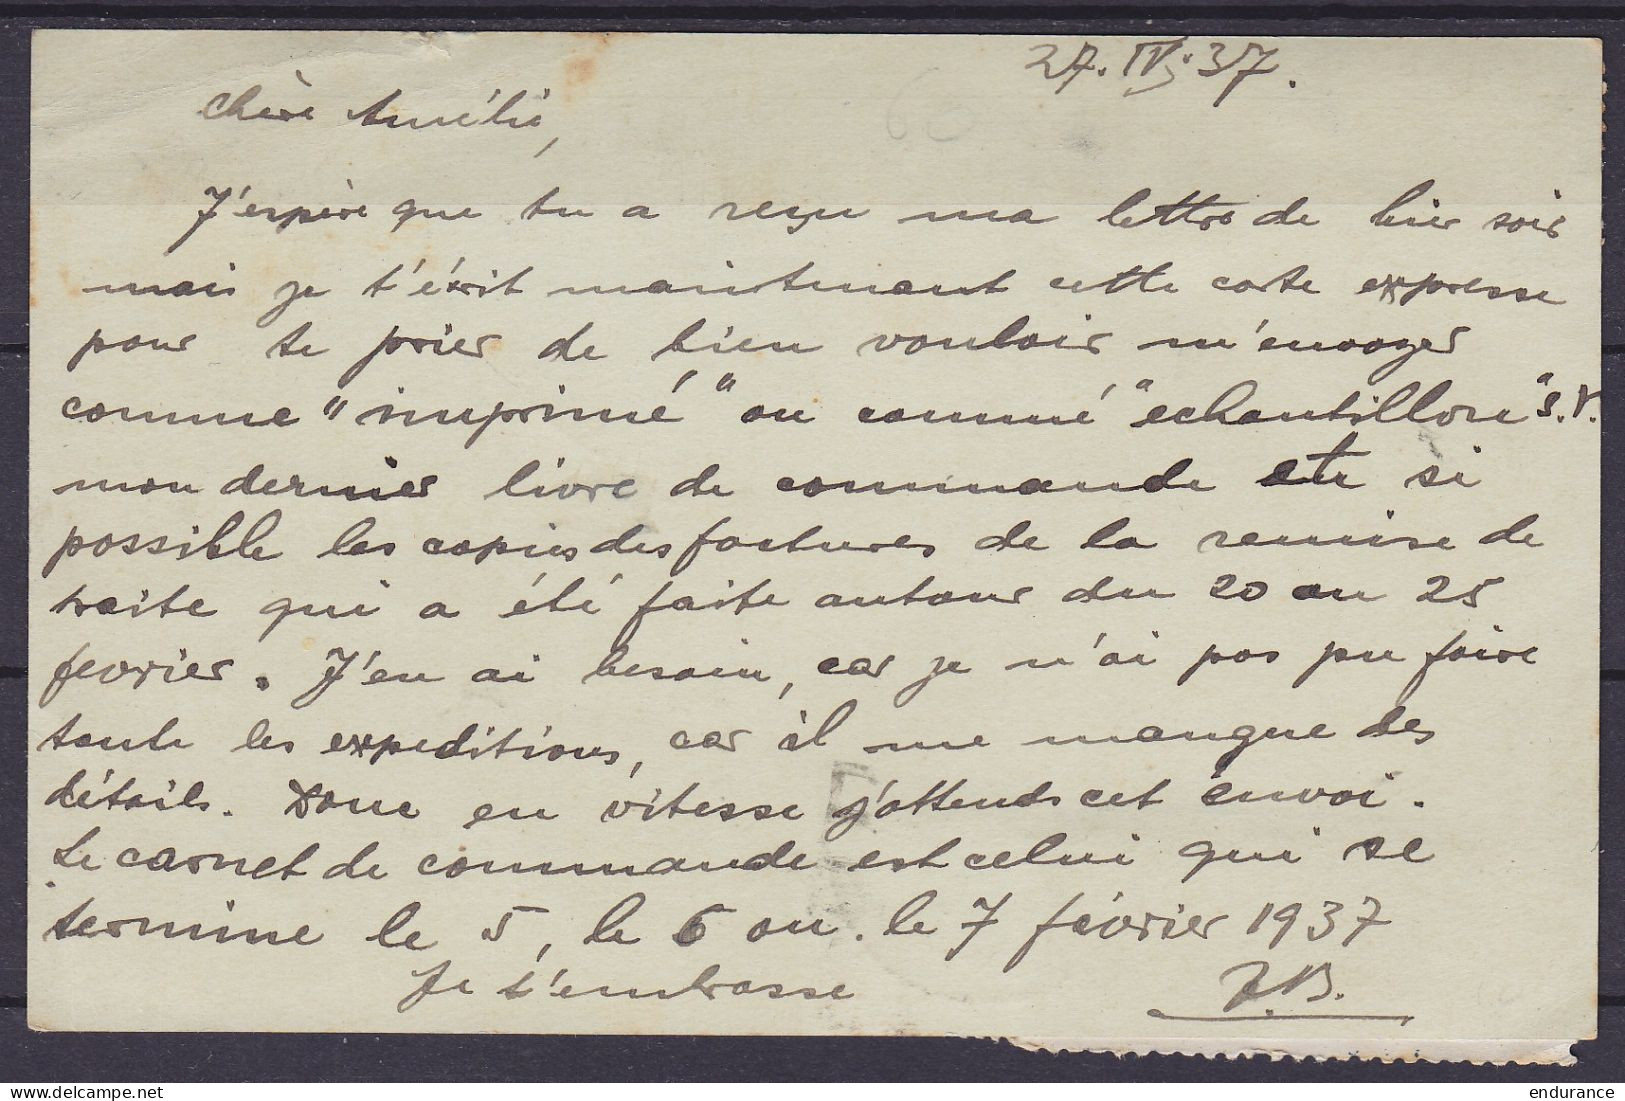 27.IV.37.
Chère Amélie,
J'espère que tu a reçu ma lettre de hier soir
mais je t'écrit maintenant cette carte expresse
pour te prier de bien vouloir m'envoyer
comme "imprimé" ou comme "echantillon" S.V.
mon dernier livre de commande et si
possible les copies des factures de la remise de
traite qui a été faite autour du 20 au 25
fevrier. J'en ai besoin, car je n'ai pas pu faire
toute les expeditions, car il me manque des
détails. Donc en vitesse j'attends cet envoi.
Le carnet de commande est celui qui se
termine le 5, le 6 ou le 7 février 1937
Je t'embrasse
J.B.
endurance